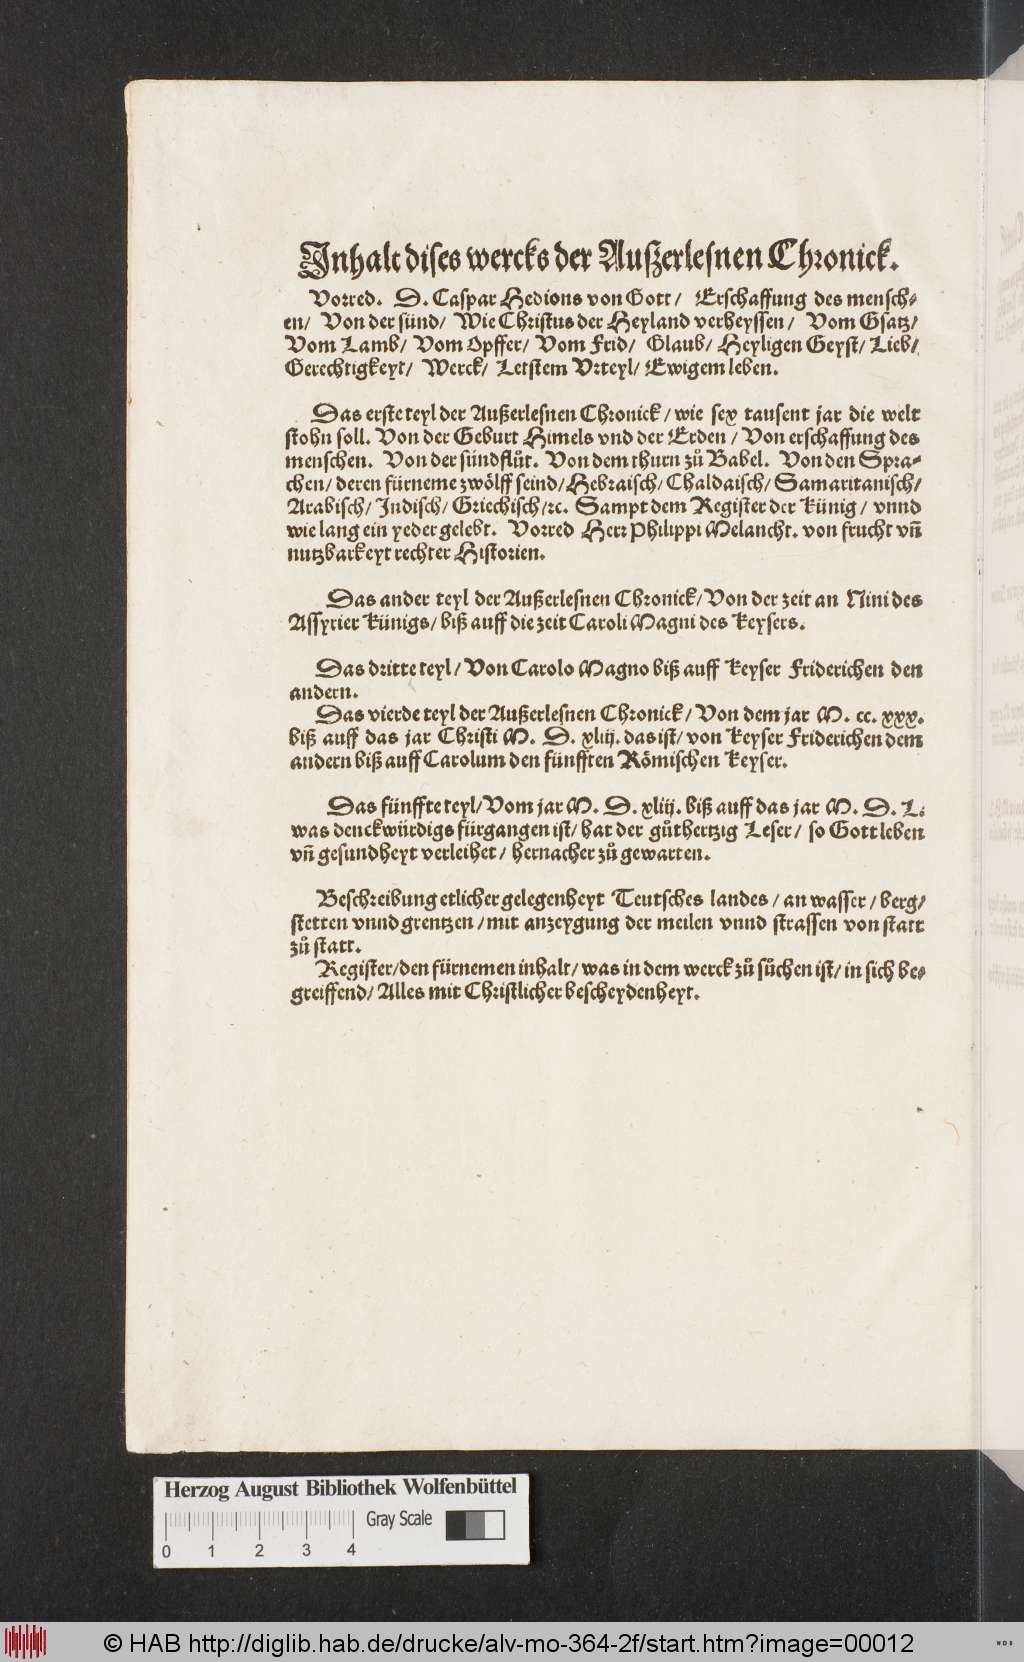 Inhalt dises wercks der Außerlesnen Chronick.
Vorred. D. Caspar Hedions von Gott / Erschaffung des mensch⸗
en / Von der sünd / Wie Christus der Heyland verheyssen / Vom Gsatz /
Vom Lamb / Vom Opffer / Vom Frid / Glaub / Heyligen Geyst / Lieb /
Gerechtigkeyt / Werck / Letstem Vrteyl / Ewigem leben.
Das erste teyl der Außerlesnen Chronick / wie sex tausent jar die welt
stohn soll. Von der Geburt Himels vnd der Erden / Von erschaffung des
menschen. Von der sündflůt. Von dem thurn zů Babel. Von den Spra⸗
chen / deren fürneme zwölff seind / Hebraisch / Chaldaisch / Samaritanisch /
Arabisch / Indisch / Griechisch / ꝛc. Sampt dem Register der Künig / vnnd
wie lang ein yeder gelebt. Vorred Herr Philippi Melancht. von frucht vñ
nutzbarkeyt rechter Historien.
Das ander teyl der Außerlesnen Chronick / Von der zeit an Nini des
Assyrier Künigs / biß auff die zeit Caroli Magni des Keysers.
Das dritte teyl / Von Carolo Magno biß auff Keyser Friderichen den
andern.
Das vierde teyl der Außerlesnen Chronick / Von dem jar M. cc. xxx.
biß auff das jar Christi M. D. xliij. das ist / von Keyser Friderichen dem
andern biß auff Carolum den fünfften Römischen Keyser.
Das fünffte teyl / Vom jar M. D. xliij. biß auff das jar M. D. L.
was denckwürdigs fürgangen ist / hat der gůthertzig Leser / so Gott leben
vñ gesundheyt verleihet / hernacher zů gewarten.
Beschreibung etlicher gelegenheyt Teutsches landes / an wasser / berg /
stetten vnnd grentzen / mit anzeygung der meilen vnnd strassen von statt
zů statt.
Register / den fürnemen inhalt / was in dem werck zů sůchen ist / in sich be⸗
greiffend / Alles mit Christlicher bescheydenheyt.
Herzog August Bibliothek Wolfenbüttel
Gray Scale
0 1 2 3 4
© HAB http://diglib.hab.de/drucke/alv-mo-364-2f/start.htm?image=00012